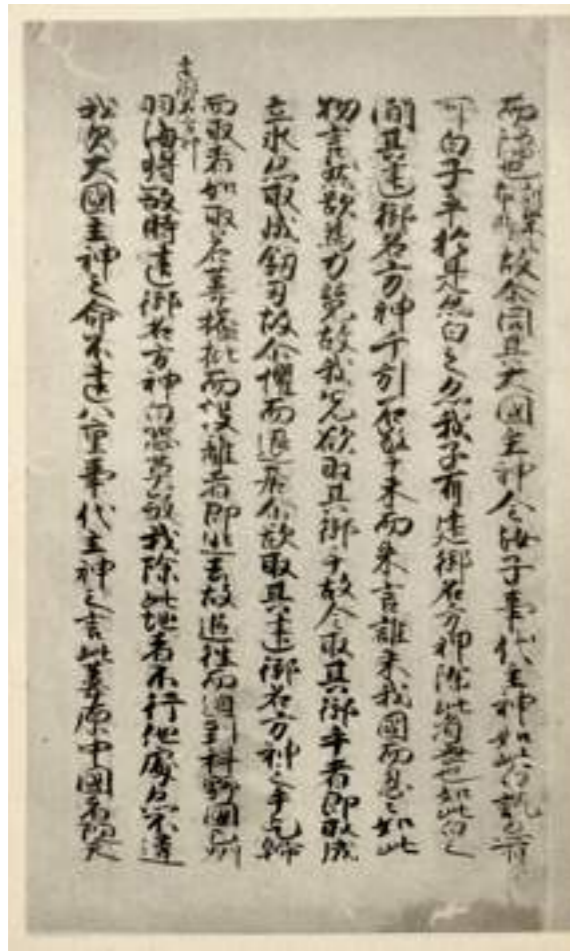 而隱也故尒問其大國主神今汝子事代主神如此白訖亦有
可白子乎於是亦白之亦我子有建御名方神除此者無也如此白之
間其建御名方神千引石擎手末而来言誰来我國而忍々如此
物言然欲為力競故我先欲取其御手故令取其御手者即取成
立氷亦取成釼刃故尒懼而退居尒欲取其建御名方神之手乞歸
而取者如取若葦搤批而投離者即逃去故追往而迫到科野國
羽海将殺時建御名方神白恐莫殺我除此地者不行他處亦不違
我父大國主神之命不違八重事代主神之言此葦原中國者隨天